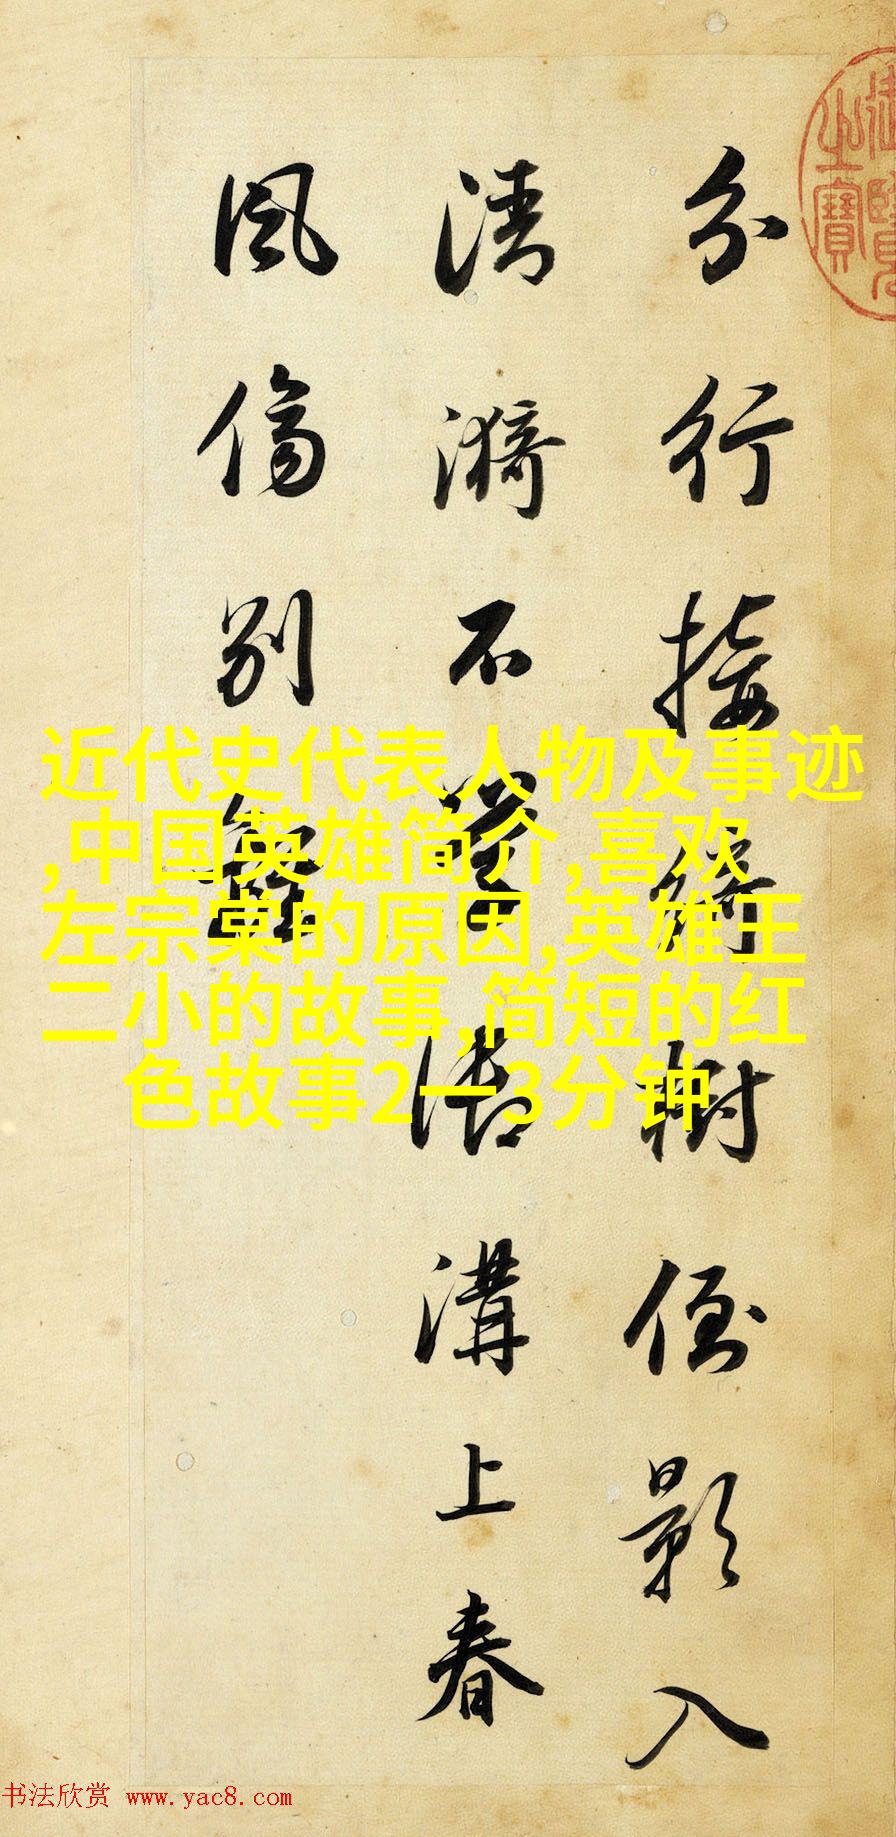 分行接綺樹倒影入
清漪不學御溝上春
風傷別離
之寶
近代史代表人物及事迹
,中国英雄简介,喜欢
左宗棠的原因,英雄王
二小的故事,简短的红
色故事2一3分钟
书法欣赏 www.yac8.com